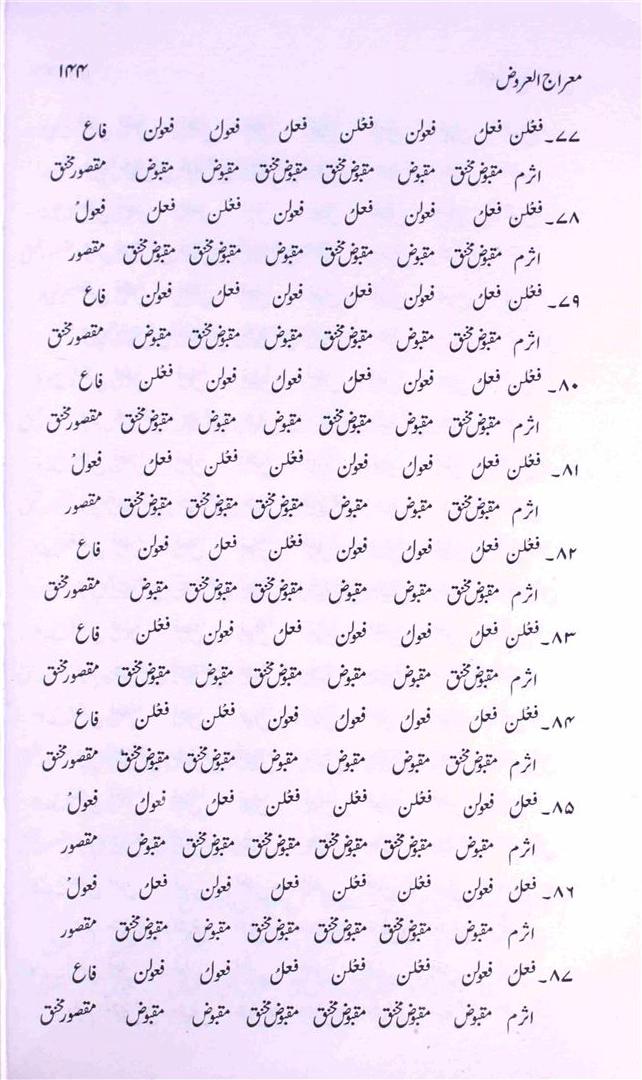 معراج العروض ۱۴۴
۷۷۔ فعْلن فعل فعولن فعْلن فعل فعول فعولن فاع
اثرم مقبوض مخنق مقبوض مقبوض مخنق مقبوض مخنق مقبوض مقبوض مقصور مخنق
۷۸۔ فعْلن فعل فعولن فعل فعولن فعْلن فعل فعولُ
اثرم مقبوض مخنق مقبوض مقبوض مخنق مقبوض مقبوض مخنق مقبوض مخنق مقصور
۷۹۔ فعْلن فعل فعولن فعل فعولن فعل فعولن فاع
اثرم مقبوض مخنق مقبوض مقبوض مخنق مقبوض مقبوض مخنق مقبوض مقصور مخنق
۸۰۔ فعْلن فعل فعولن فعل فعول فعولن فعْلن فاع
اثرم مقبوض مخنق مقبوض مقبوض مخنق مقبوض مقبوض مقبوض مخنق مقصور مخنق
۸۱۔ فعْلن فعل فعول فعولن فعْلن فعْلن فعل فعولُ
اثرم مقبوض مخنق مقبوض مقبوض مقبوض مخنق مقبوض مخنق مقبوض مخنق مقصور
۸۲۔ فعْلن فعل فعول فعولن فعْلن فعل فعولن فاع
اثرم مقبوض مخنق مقبوض مقبوض مقبوض مخنق مقبوض مخنق مقبوض مقصور مخنق
۸۳۔ فعْلن فعل فعول فعولن فعل فعولن فعْلن فاع
اثرم مقبوض مخنق مقبوض مقبوض مقبوض مخنق مقبوض مقبوض مخنق مقصور مخنق
۸۴۔ فعْلن فعل فعول فعول فعولن فعْلن فعْلن فاع
اثرم مقبوض مخنق مقبوض مقبوض مقبوض مقبوض مخنق مقبوض مخنق مقصور مخنق
۸۵۔ فعل فعولن فعْلن فعْلن فعْلن فعل فعول فعولُ
اثرم مقبوض مقبوض مخنق مقبوض مخنق مقبوض مخنق مقبوض مخنق مقبوض مقصور
۸۶۔ فعل فعولن فعْلن فعْلن فعل فعولن فعل فعولُ
اثرم مقبوض مقبوض مخنق مقبوض مخنق مقبوض مخنق مقبوض مقبوض مخنق مقصور
۸۷۔ فعل فعولن فعْلن فعْلن فعل فعول فعولن فاع
اثرم مقبوض مقبوض مخنق مقبوض مخنق مقبوض مخنق مقبوض مقبوض مقصور مخنق